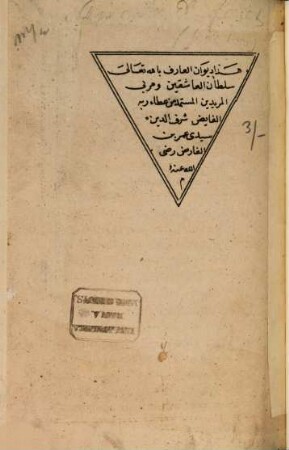 هذا ديوان العارف بالله تعالى
سلطان العاشقين ومربي
المريدين المستمد من عطاء ربه
الفايض شرف الدين
سيدي عمر بن
الفارض رضي
الله عنه
م
3/-